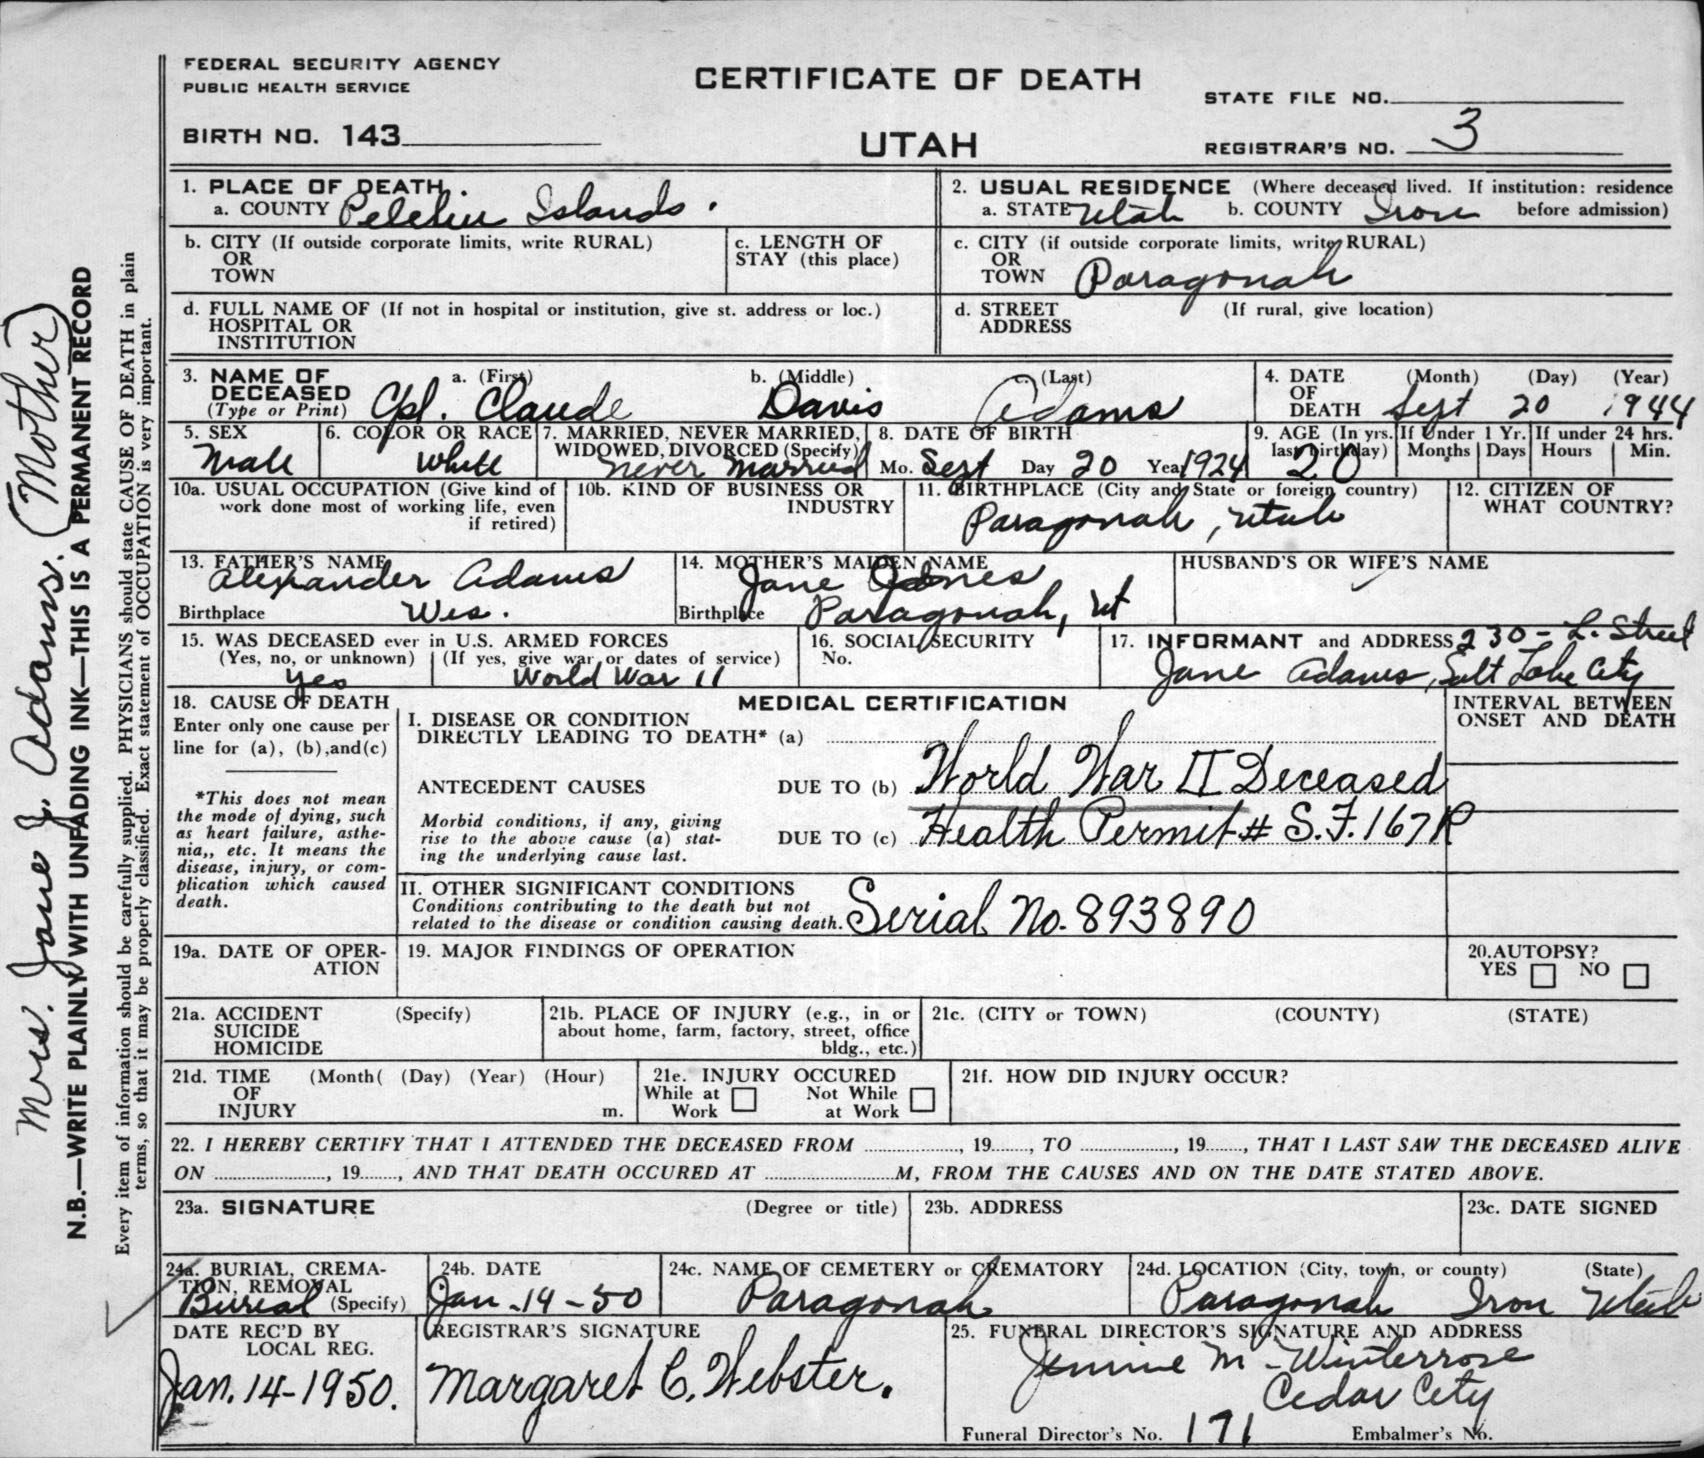 FEDERAL SECURITY AGENCY
PUBLIC HEALTH SERVICE
CERTIFICATE OF DEATH
STATE FILE NO.
BIRTH NO. 143
UTAH
REGISTRAR'S NO. 3
1. PLACE OF DEATH.
a. COUNTY Peleliu Islands.
2. USUAL RESIDENCE (Where deceased lived. If institution: residence before admission)
a. STATE Utah b. COUNTY Iron
b. CITY (If outside corporate limits, write RURAL)
OR
TOWN
c. LENGTH OF
STAY (this place)
c. CITY (if outside corporate limits, write RURAL)
OR
TOWN Paragonah
d. FULL NAME OF (If not in hospital or institution, give st. address or loc.)
HOSPITAL OR
INSTITUTION
d. STREET (If rural, give location)
ADDRESS
3. NAME OF a. (First) b. (Middle) c. (Last)
DECEASED
(Type or Print) Cpl. Claude Davis Adams
4. DATE (Month) (Day) (Year)
OF
DEATH Sept 20 1944
5. SEX
Male
6. COLOR OR RACE
White
7. MARRIED, NEVER MARRIED,
WIDOWED, DIVORCED (Specify)
never married
8. DATE OF BIRTH
Mo. Sept Day 20 Year 1924
9. AGE (In yrs.
last birthday)
20
If Under 1 Yr.
Months Days
If under 24 hrs.
Hours Min.
10a. USUAL OCCUPATION (Give kind of
work done most of working life, even
if retired)
10b. KIND OF BUSINESS OR
INDUSTRY
11. BIRTHPLACE (City and State or foreign country)
Paragonah, Utah
12. CITIZEN OF
WHAT COUNTRY?
13. FATHER'S NAME
Alexander Adams
Birthplace Wis.
14. MOTHER'S MAIDEN NAME
Jane Jones
Birthplace Paragonah, Ut
HUSBAND'S OR WIFE'S NAME
15. WAS DECEASED ever in U.S. ARMED FORCES
(Yes, no, or unknown) (If yes, give war or dates of service)
Yes World War 11
16. SOCIAL SECURITY
No.
17. INFORMANT and ADDRESS 230 - L. Street
Jane Adams, Salt Lake City
18. CAUSE OF DEATH
Enter only one cause per
line for (a), (b), and (c)
*This does not mean
the mode of dying, such
as heart failure, asthe-
nia,, etc. It means the
disease, injury, or com-
plication which caused
death.
MEDICAL CERTIFICATION
INTERVAL BETWEEN
ONSET AND DEATH
I. DISEASE OR CONDITION
DIRECTLY LEADING TO DEATH* (a)
ANTECEDENT CAUSES DUE TO (b) World War II Deceased
Morbid conditions, if any, giving
rise to the above cause (a) stat-
ing the underlying cause last.
DUE TO (c) Health Permit # S.F. 167R
II. OTHER SIGNIFICANT CONDITIONS
Conditions contributing to the death but not
related to the disease or condition causing death.
Serial No. 893890
19a. DATE OF OPER-
ATION
19. MAJOR FINDINGS OF OPERATION
20. AUTOPSY?
YES NO
21a. ACCIDENT (Specify)
SUICIDE
HOMICIDE
21b. PLACE OF INJURY (e.g., in or
about home, farm, factory, street, office
bldg., etc.)
21c. (CITY or TOWN) (COUNTY) (STATE)
21d. TIME (Month( (Day) (Year) (Hour)
OF
INJURY m.
21e. INJURY OCCURED
While at Work Not While at Work
21f. HOW DID INJURY OCCUR?
22. I HEREBY CERTIFY THAT I ATTENDED THE DECEASED FROM ............, 19......, TO ............, 19......, THAT I LAST SAW THE DECEASED ALIVE
ON ............, 19......, AND THAT DEATH OCCURED AT ............M, FROM THE CAUSES AND ON THE DATE STATED ABOVE.
23a. SIGNATURE (Degree or title)
23b. ADDRESS
23c. DATE SIGNED
24a. BURIAL, CREMA-
TION, REMOVAL
Burial (Specify)
24b. DATE
Jan-14-50
24c. NAME OF CEMETERY or CREMATORY
Paragonah
24d. LOCATION (City, town, or county) (State)
Paragonah Iron Utah
DATE REC'D BY
LOCAL REG.
Jan. 14-1950.
REGISTRAR'S SIGNATURE
Margaret C. Webster.
25. FUNERAL DIRECTOR'S SIGNATURE AND ADDRESS
M. Winterrose
Cedar City
Funeral Director's No. 171 Embalmer's No.
Mrs. Jane J. Adams. (Mother)
N.B.—WRITE PLAINLY WITH UNFADING INK—THIS IS A PERMANENT RECORD
Every item of information should be carefully supplied. PHYSICIANS should state CAUSE OF DEATH in plain
terms, so that it may be properly classified. Exact statement of OCCUPATION is very important.